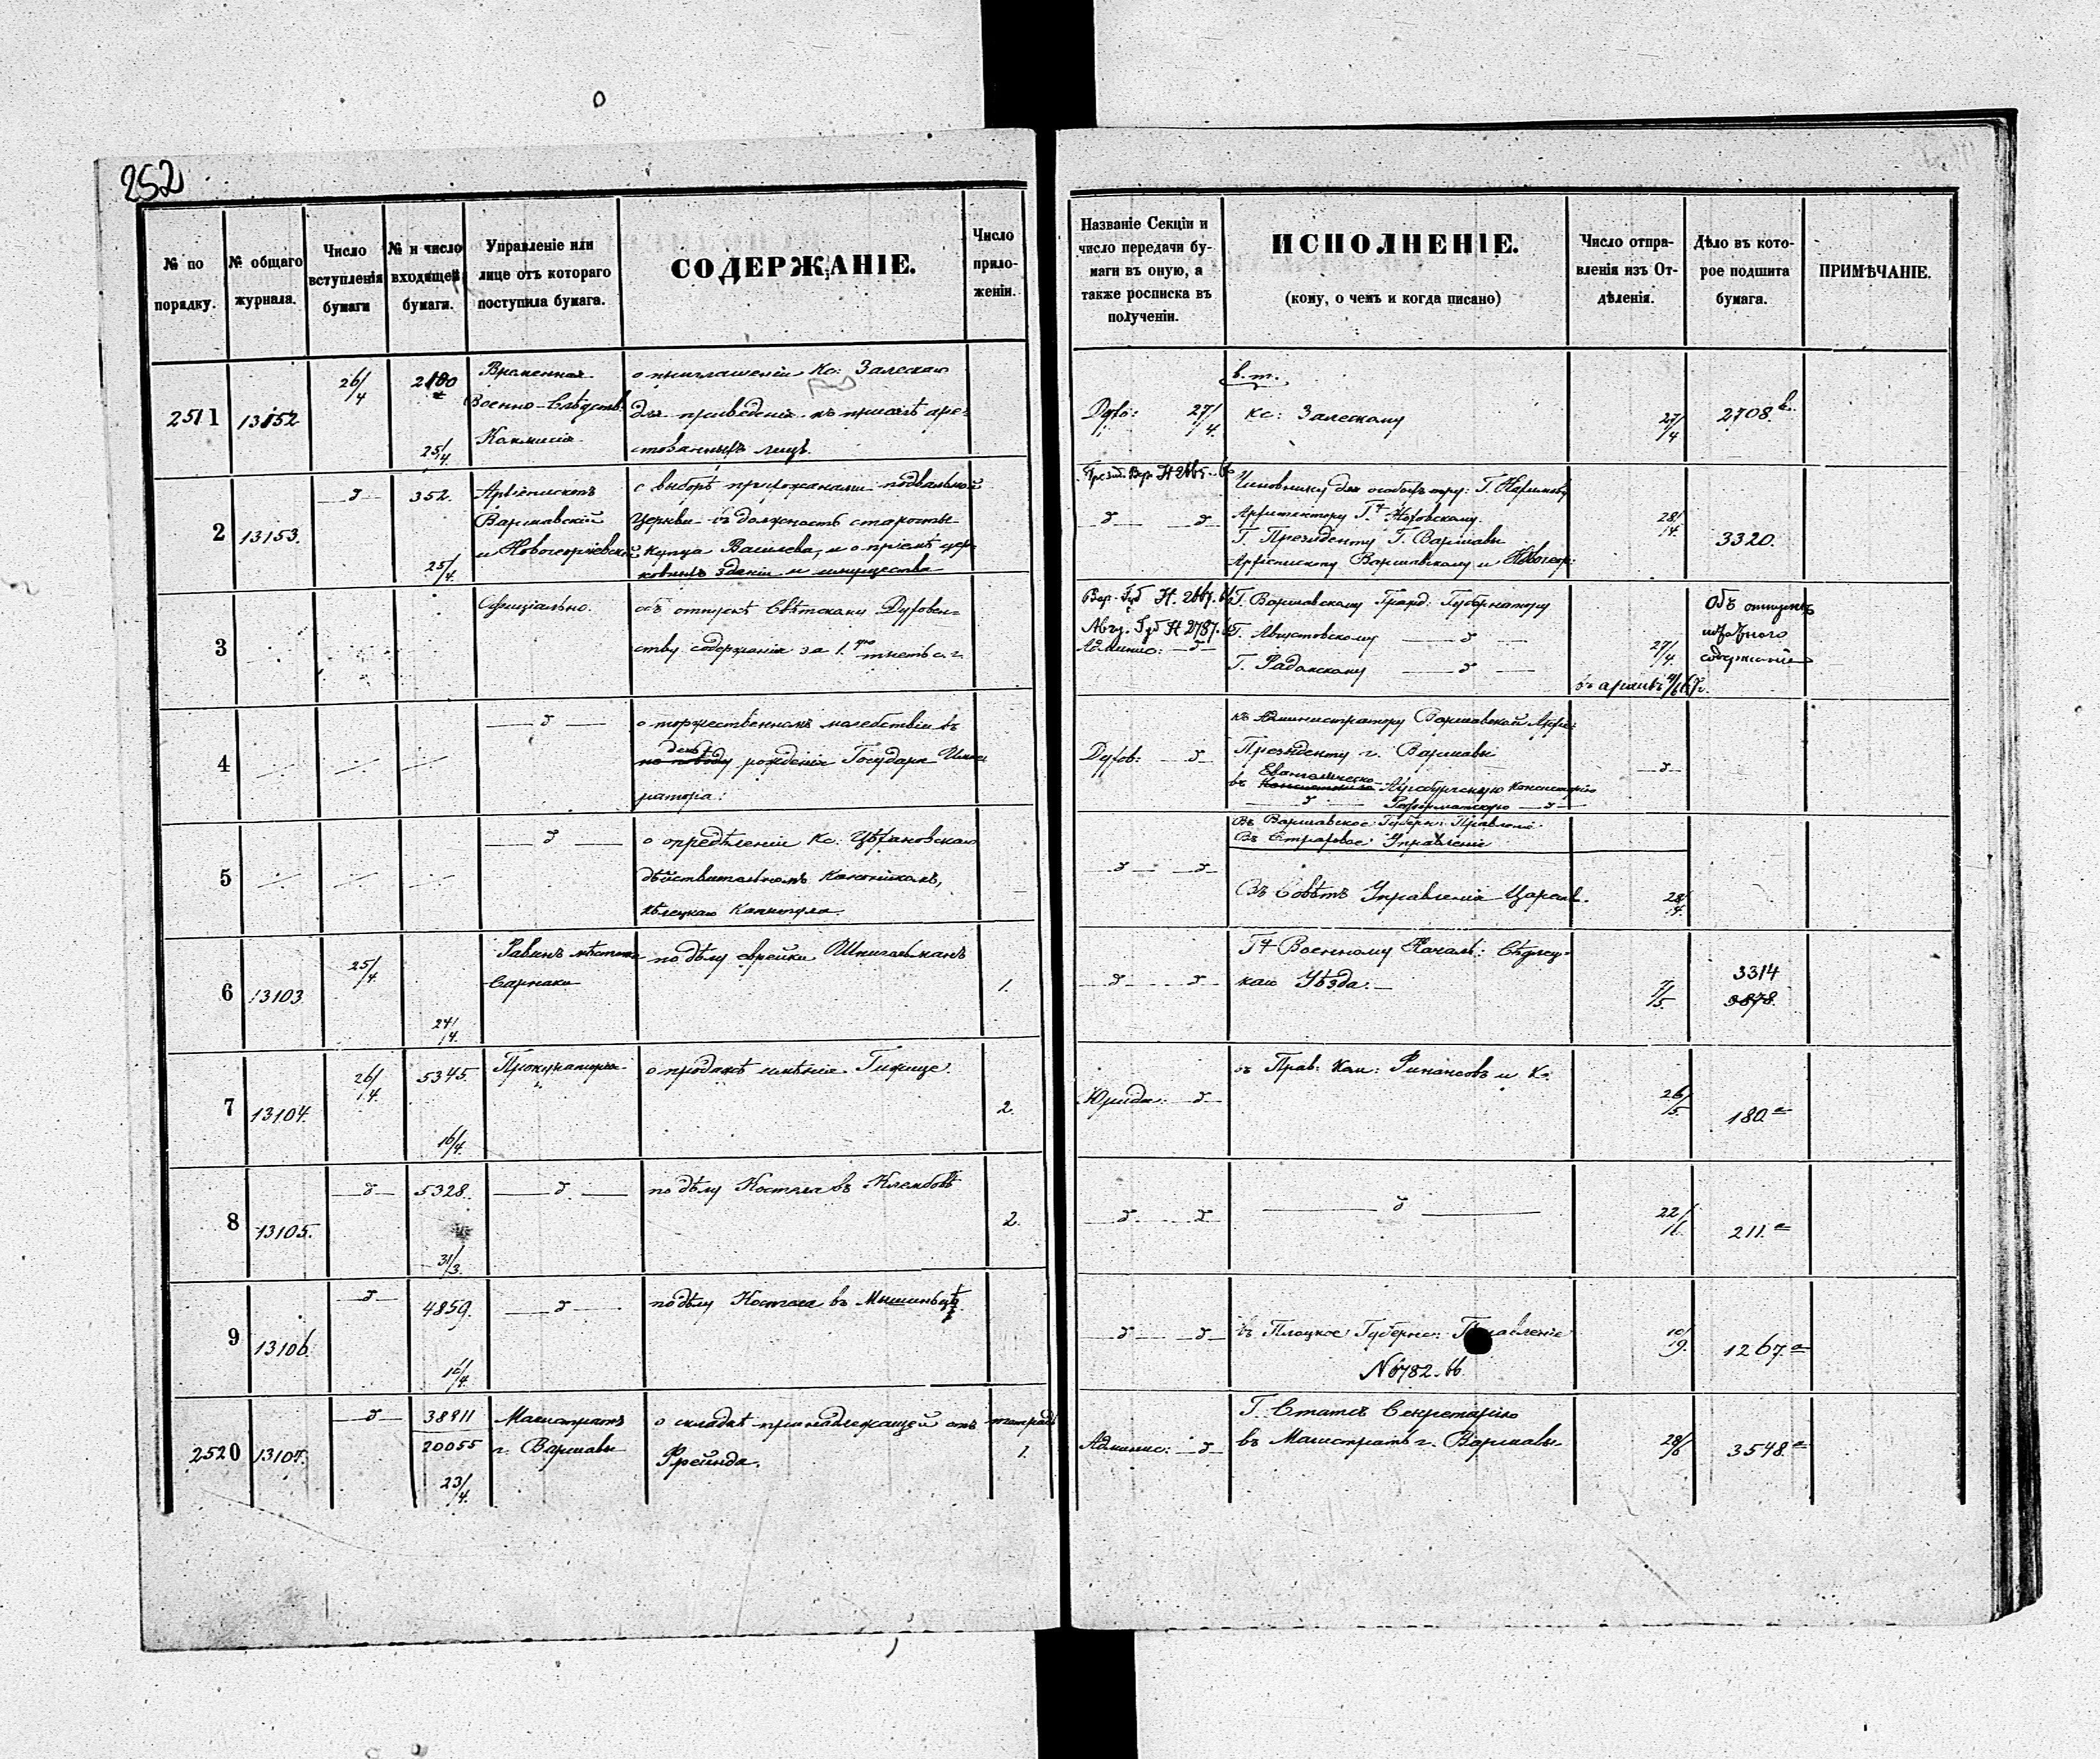 252
№ по порядку.
№ общаго журнала.
Число вступленія бумаги
№ и число входящей бумаги.
Управленіе или лице отъ котораго поступила бумага.
СОДЕРЖАНІЕ.
Число приложеніи.
Названіе Секціи и число передачи бумаги въ оную, а также росписка въ полученіи.
ИСПОЛНЕНІЕ.
(кому, о чемъ и когда писано)
Число отправленія изъ Отдѣленія.
Дѣло въ которое подшита бумага.
ПРИМѢЧАНІЕ.
2511
13152
26/4
2180
25/4.
Временная
Военно-Слѣдств.
Коммисія
о приглашеніи Кс: Залескаго
для приведенія къ присягѣ аре-
стованныхъ лицъ.
Духо: 27/4.
в.т.
кс: Залескому
27/4
2708
2
13153.
352.
25/4.
Архіепископъ
Варшавскій
и Новогеоргіевскій
о выборѣ прихожанами подвальной
Церкви въ должность старосты
купца Василева, и о пріемѣ цер-
ковныхъ зданій и имущества
Чиновнику для особыхъ пору:
Архитектору
Г. Президенту Г. Варшавы
Архіепископу Варшавскому и Новогеор:
28/4.
3320.
3
Офиціально.
объ отпускѣ Свѣтскому Духовен-
ству содержанія за 1.
Вар. Губ №. 2667.
Авгу. Губ № 2787.
Админис:
Г. Варшавскому Гражд. Губернатору
Г. Августовскому
Г. Радомскому
27/4.
въ архивъ
Объ отпускѣ
содержанія
4
о торжественномъ молебствіи въ
день
по поводу рожденія Государя Импе
ратора.
Духов:
къ Администратору Варшавской Архи:
Президенту г. Варшавы
Евангелическо
въ Аугсбургскую Консисторію
Реформатскую
Въ Варшавское Губерн: Правленіе
Въ Страховое Управленіе
5
о опредѣленіи Кс. Цѣхановскаго
дѣйствительнымъ Каноникомъ,
Кѣлецкаго Капитула.
Въ Совѣтъ Управленія Царств.
28/4.
6
13103
25/4.
24/4.
Равинъ мѣстечка
Сарнаки
по дѣлу еврейки Шнигельманъ
1.
Военному Началь: Сѣдлец-
каго Уѣзда.
7/5.
3314
3878.
7
13104.
26/4.
5345.
16/4.
Прокураторія
о продажѣ имѣнія Гижице.
2.
Юриди:
въ Прав: Ком: Финансовъ и К.
26/5.
180.
8
13105.
5328.
31/3.
по дѣлу Костела въ Клембовѣ
2.
22/6.
211.
9
13106
4859.
по дѣлу Костела въ Мышиньцѣ.
въ Плоцкое Губерн: Правленіе
№ 6782. 66.
10/9.
1267.
2520
13107.
38811
20055
23/4.
Магистратъ
г. Варшавы
о складкѣ принадлежащей отъ
Фрейнда.
1.
Админис:
Г. Статсъ Секретарію
въ Магистратъ г. Варшавы
28/6
3548.